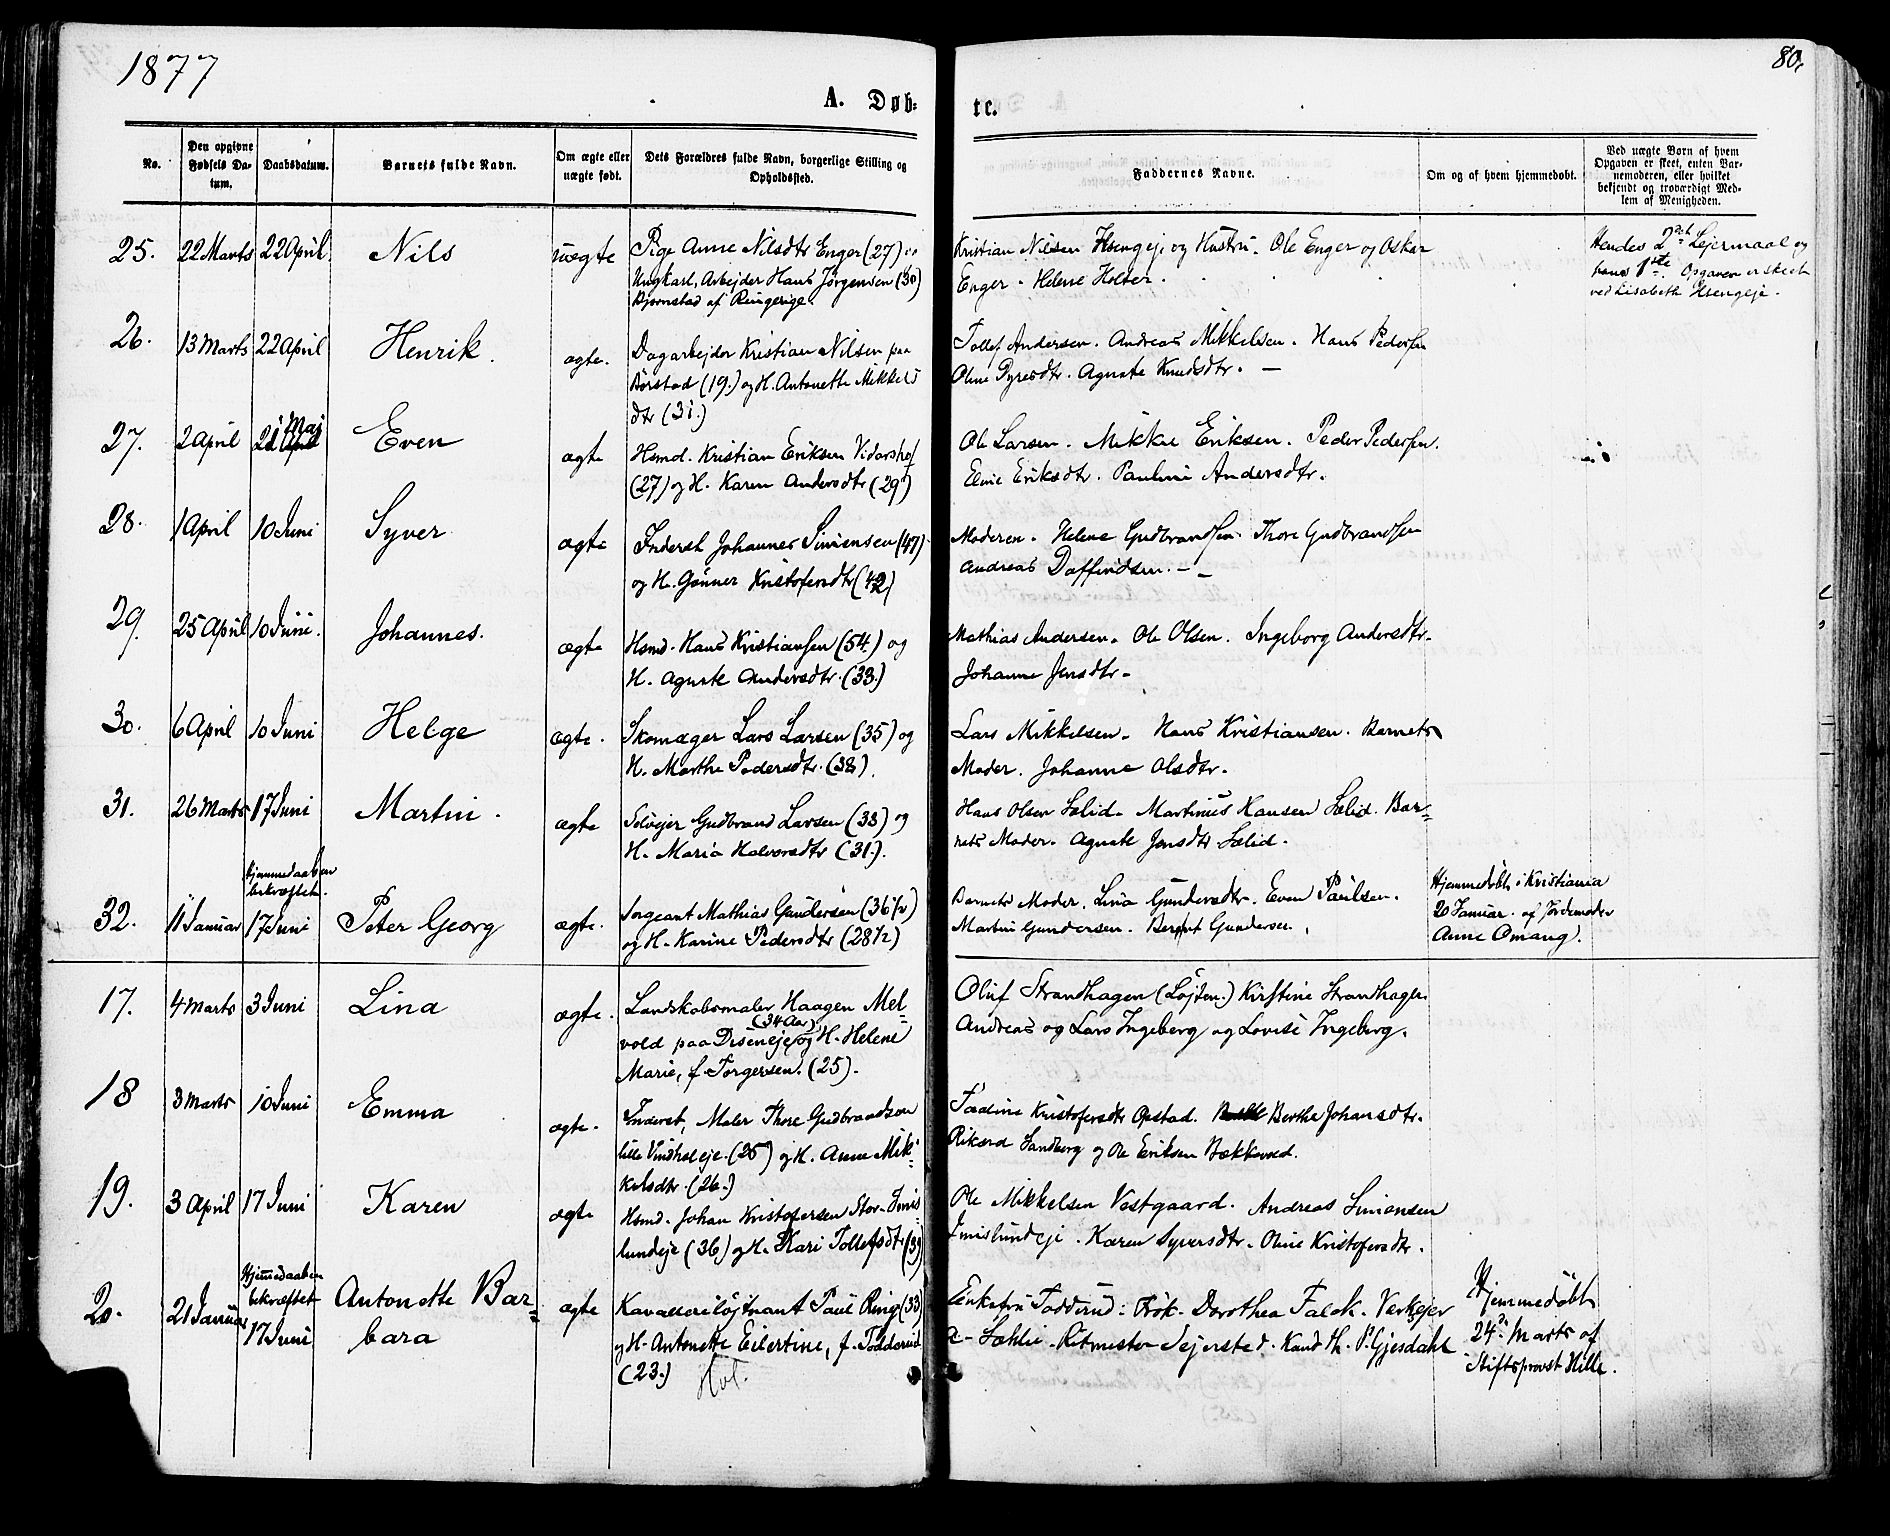 1877
80.
A. Døb-
te.
No.
Den opgivne Fødsels Da-
tum.
Daabsdatum.
Barnets fulde Navn.
Om ægte eller
uægte født.
Dets Forældres fulde Navn, borgerlige Stilling og
Opholdssted.
Faddernes Navne.
Om og af hvem hjemmedøbt.
Ved uægte Børn af hvem
Opgaven er skeet, enten Bar-
nemoderen, eller hvilket
bekjendt og troværdigt Med-
lem af Menigheden.
25. 22 Marts 22 April Nils uægte
Pige Anne Nilsdtr Enger (27) og
Ungkarl, Arbejder Hans Jørgensen (30)
Bjørnstad af Ringerige.
Kristian Nilsen Hsengeje og Hustru. Ole Enger og Oskar
Enger. Helene Holter.
Hendes 2det Lejermaal og
hans 1ste. Opgaven er skeet
ved Lisabeth Hsengeje.
26. 13 Marts 22 April Henrik. ægte.
Dagarbejder Kristian Nilsen paa
Børstad (19.) og H. Antonette Mikkels
dtr (31.)
Tollef Andersen. Andreas Mikkelsen. Hans Pedersen
Oline Pyresdtr. Agnete Knudsdtr. —
27. 2 April 21 Maj Even ægte
Hsmd. Kristian Eriksen Vidarshof
(27) og H. Karen Andersdtr (29)
Ole Larsen. Mikkel Eriksen. Peder Pedersen.
Eline Eriksdtr. Pauline Andersdtr.
28. 1 April 10 Juni Syver ægte
Inderst Johannes Simensen (47)
og H. Gunner Kristofersdtr (42)
Moderen. Helene Gudbrandsen. Thore Gudbrandsen
Andreas Daffindsen. —
29. 25 April 10 Juni. Johannes. ægte
Hsmd. Hans Kristiansen (54.) og
H. Agnete Andersdtr. (33.)
Mathias Andersen. Ole Olsen. Ingeborg Andersdtr.
Johanne Jensdtr.
30. 6 April 10 Juni Helge ægte.
Skomager Lars Larsen (35) og
H. Marthe Pedersdtr. (38).
Lars Mikkelsen. Hans Kristiansen. Barnets
Moder. Johanne Olsdtr.
31. 26 Marts 17 Juni Martin. ægte
Selvejer Gudbrand Larsen (33) og
H. Maria Halvorsdtr (31.).
Hans Olsen Sælid. Martinus Hansen Sælid. Bar-
nets Moder. Agnete Jensdtr Sælid.
32. 11 Januar
Hjemmedaaben
bekræftet.
17 Juni Peter Georg ægte.
Sergeant Mathias Gundersen (36½)
og H. Karine Pedersdtr (28½)
Barnets Moder. Lina Gundersdtr. Even Paulsen.
Martin Gundersen. Bernt Gundersen.
Hjemmedøbt i Kristiania
20 Januar. af Jordemoder
Anne Omang.
17. 4 Marts 3 Juni Lina ægte.
Landskabsmaler Haagen Mel-
(34 Aar)
vold paa Diseneje og H. Helene
Marie, f. Torgersen. (25).
Oluf Strandhagen (Løjtn.) Kirstine Strandhagen
Andreas og Lars Ingeberg og Lovise Ingeberg.
18 3 Marts 10 Juni Emma ægte.
Inderst, Maler Thore Gudbrandsen
lille Vindhol eje. (25) og H. Anne Mik-
kelsdtr. (26.)
Paaline Kristofersdtr Opstad. Berthe Johansdtr.
Rikard Sandberg og Ole Eriksen Bækkevold.
19. 3 April 17 Juni Karen ægte
Hsmd. Johan Kristofersen Stor-Imis-
lundeje (36) og H. Kari Tollefsdtr (39)
Ole Mikkelsen Vestgaard. Andreas Simensen
Imislundeje. Karen Syversdtr. Oline Kristofersdtr.
20. 21 Januar
Hjemmedaaben
bekræftet
17 Juni
Antonette Bar-
bara
ægte
Kavalleriløjtnant Paul Ring (33)
og H. Antonette Eilertine, f. Todderud
(23.)
Enkefru Todderud. Frøk. Dorothea Falck. Verkejer
A. Sæhlie. Ritmester Sejersted. Kand. th. P. Gjesdahl
Hjemmedøbt
24de Marts af
Stiftsprovst Hille.